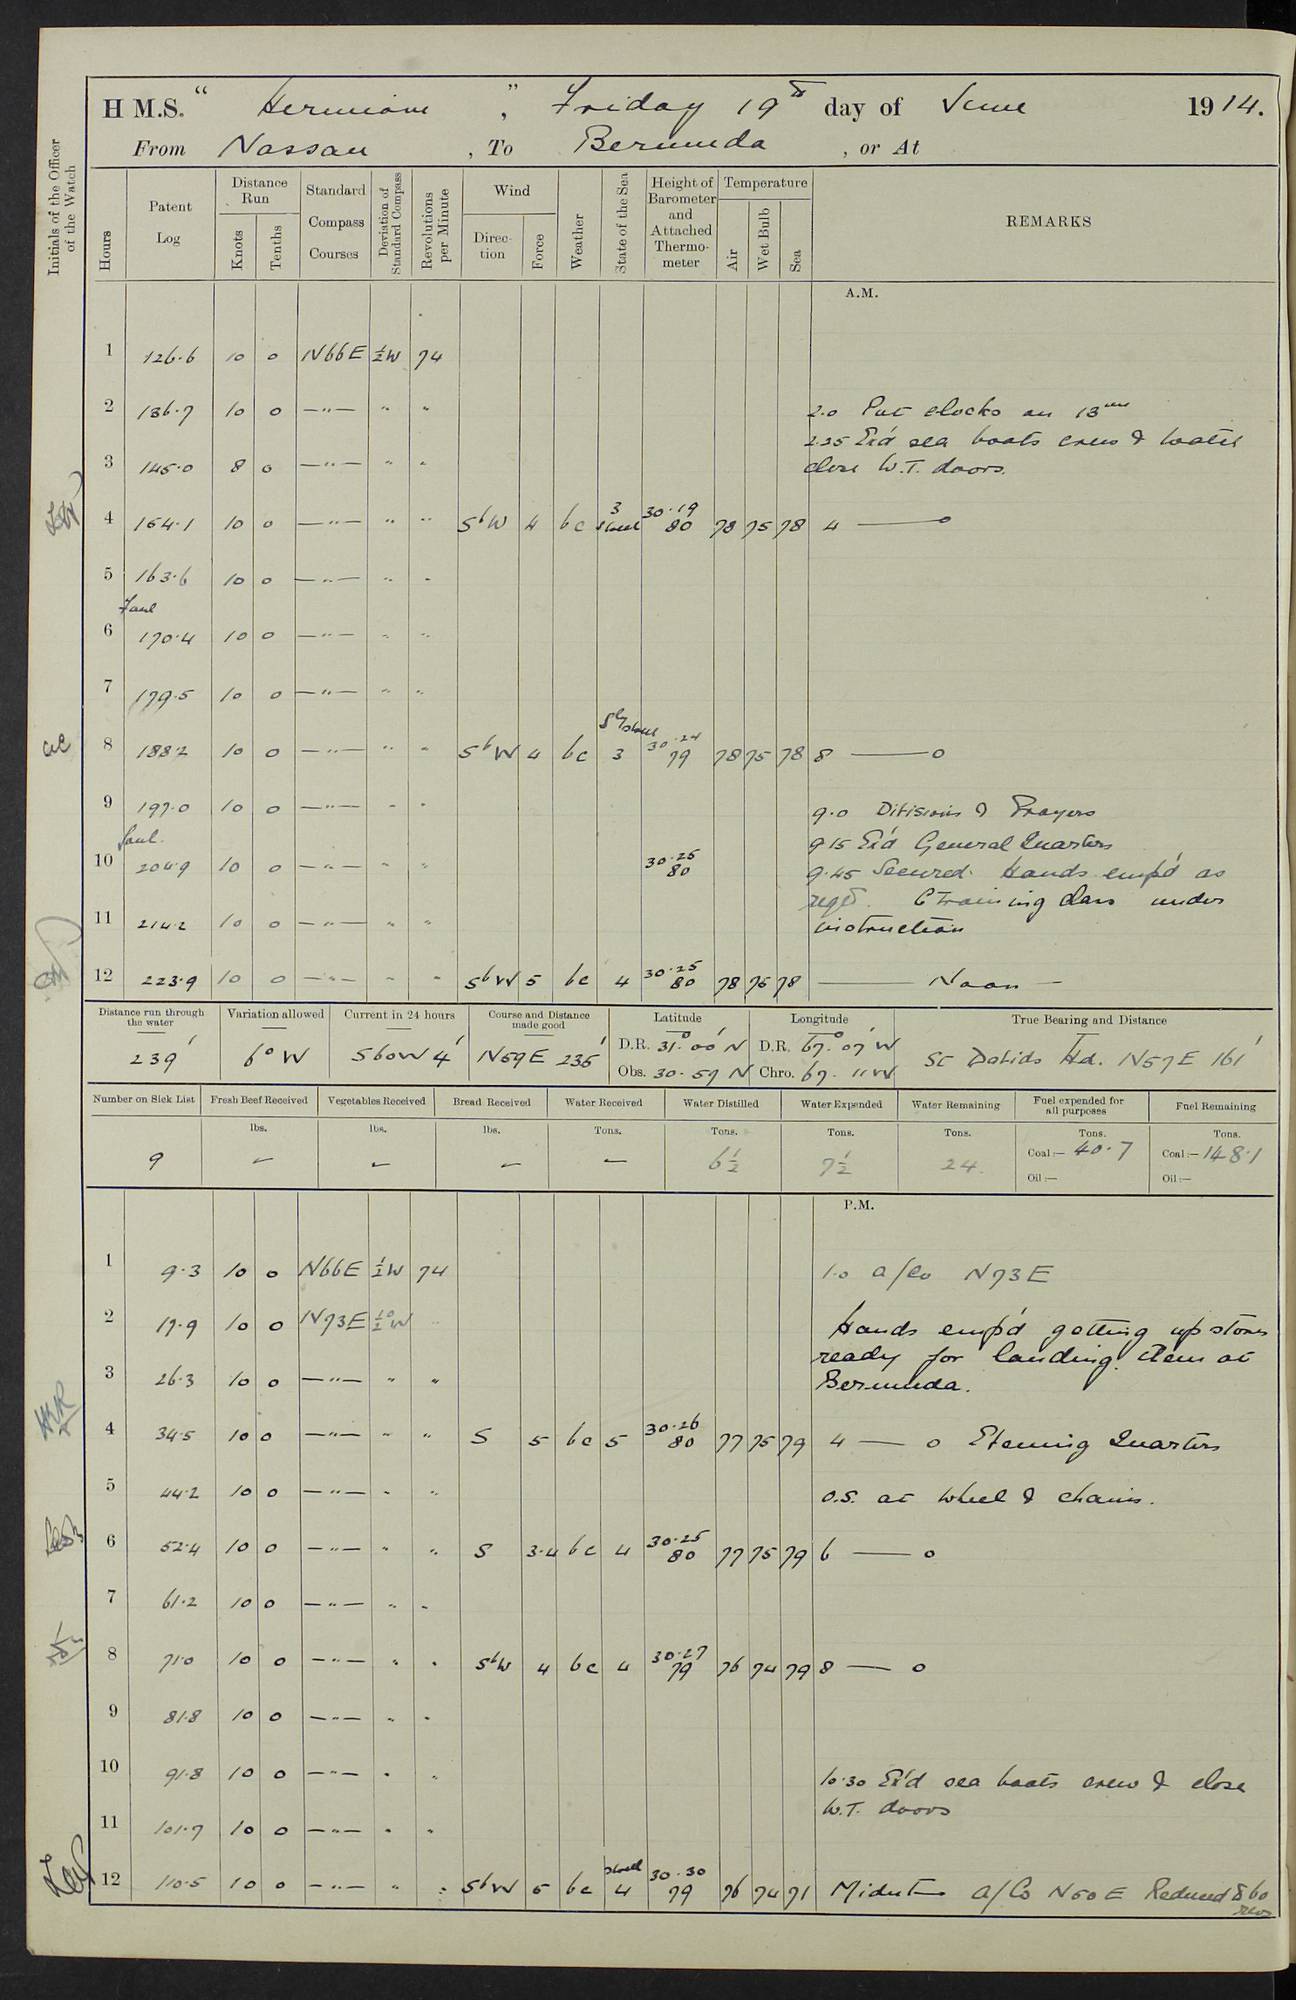 H M.S. " Hermione " , Friday 19th day of June 1914.
From Nassau , To Bermuda , or At
Initials of the Officer of the Watch
Hours
Patent Log
Distance Run
Knots
Tenths
Standard Compass Courses
Deviation of Standard Compass
Revolutions per Minute
Wind
Direction
Force
Weather
State of the Sea
Height of Barometer and Attached Thermometer
Temperature
Air
Wet Bulb
Sea
REMARKS
A.M.
1 126.6 10 0 N66E ½W 74
2 136.7 10 0 —"— " " 2.0 Put clocks on 13 min
2.35 Ex'd sea boats crew &
3 145.0 8 0 —"— " " close W.T. doors.
4 154.1 10 0 —"— " " SbW 4 bc 3 30.19 80 78 75 78 4 — o
5 163.6 10 0 —"— " "
Foul
6 170.4 10 0 —"— " "
7 179.5 10 0 —"— " "
8 188.2 10 0 —"— " " SbW 4 bc 3 30.24 79 78 75 78 8 — o
9 197.0 10 0 —"— " " 9.0 Divisions & Prayers
foul. 9.15 Ex'd General Quarters
10 204.9 10 0 —"— " " 30.25 80 9.45 Secured. Hands emp'd as
reqd. Training Class under
11 214.2 10 0 —"— " " instruction
12 223.9 10 0 —"— " " SbW 5 bc 4 30.25 80 78 75 78 — Noon —
Distance run through the water 239'
Variation allowed 6° W
Current in 24 hours S60W 4'
Course and Distance made good N59E 235'
Latitude D.R. 31° 00' N Obs. 30.57 N
Longitude D.R. 67° 07' W Chro. 67. 11 W
True Bearing and Distance St Davids Hd. N57E 161'
Number on Sick List 9
Fresh Beef Received lbs. —
Vegetables Received lbs. —
Bread Received lbs. —
Water Received Tons. —
Water Distilled Tons. 6½
Water Expended Tons. 7½
Water Remaining Tons. 24
Fuel expended for all purposes Tons. Coal:— 40.7 Oil:—
Fuel Remaining Tons. Coal:— 148.1 Oil:—
P.M.
1 9.3 10 0 N66E ½W 74 1.0 a/co N73E
2 17.9 10 0 N73E ½°W " Hands emp'd getting up stores
ready for landing them at
3 26.3 10 0 —"— " " Bermuda.
4 34.5 10 0 —"— " " S 5 bc 5 30.26 80 77 75 79 4 — o Evening Quarters
5 44.2 10 0 —"— " " O.S. at wheel & chains.
6 52.4 10 0 —"— " " S 3.4 bc 4 30.25 80 77 75 79 6 — o
7 61.2 10 0 —"— " "
8 71.0 10 0 —"— " " SbW 4 bc 4 30.27 79 76 74 79 8 — o
9 81.8 10 0 —"— " "
10 91.8 10 0 —"— " " 10.30 Ex'd sea boats crew & close
W.T. doors
11 101.7 10 0 —"— " "
12 110.5 10 0 —"— " " SbW 5 bc 4 30.30 79 76 74 71 Midnt a/Co N50E Reduced to 60
revs